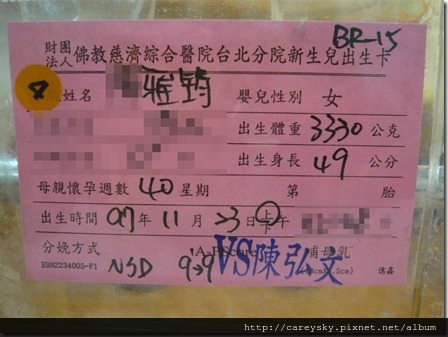 BR-15
財團法人 佛教慈濟綜合醫院台北分院新生兒出生卡
8 姓名 雅筠 嬰兒性別 女
出生體重 3330 公克
出生身長 49 公分
母親懷孕週數 40 星期 第 胎
出生時間 97年 11月 23日 上下午
分娩方式 NSD A-P Score 9→9 哺母乳
VS陳弘文
ESN2234005-F1 德鑫
http://careysky.pixnet.net/album